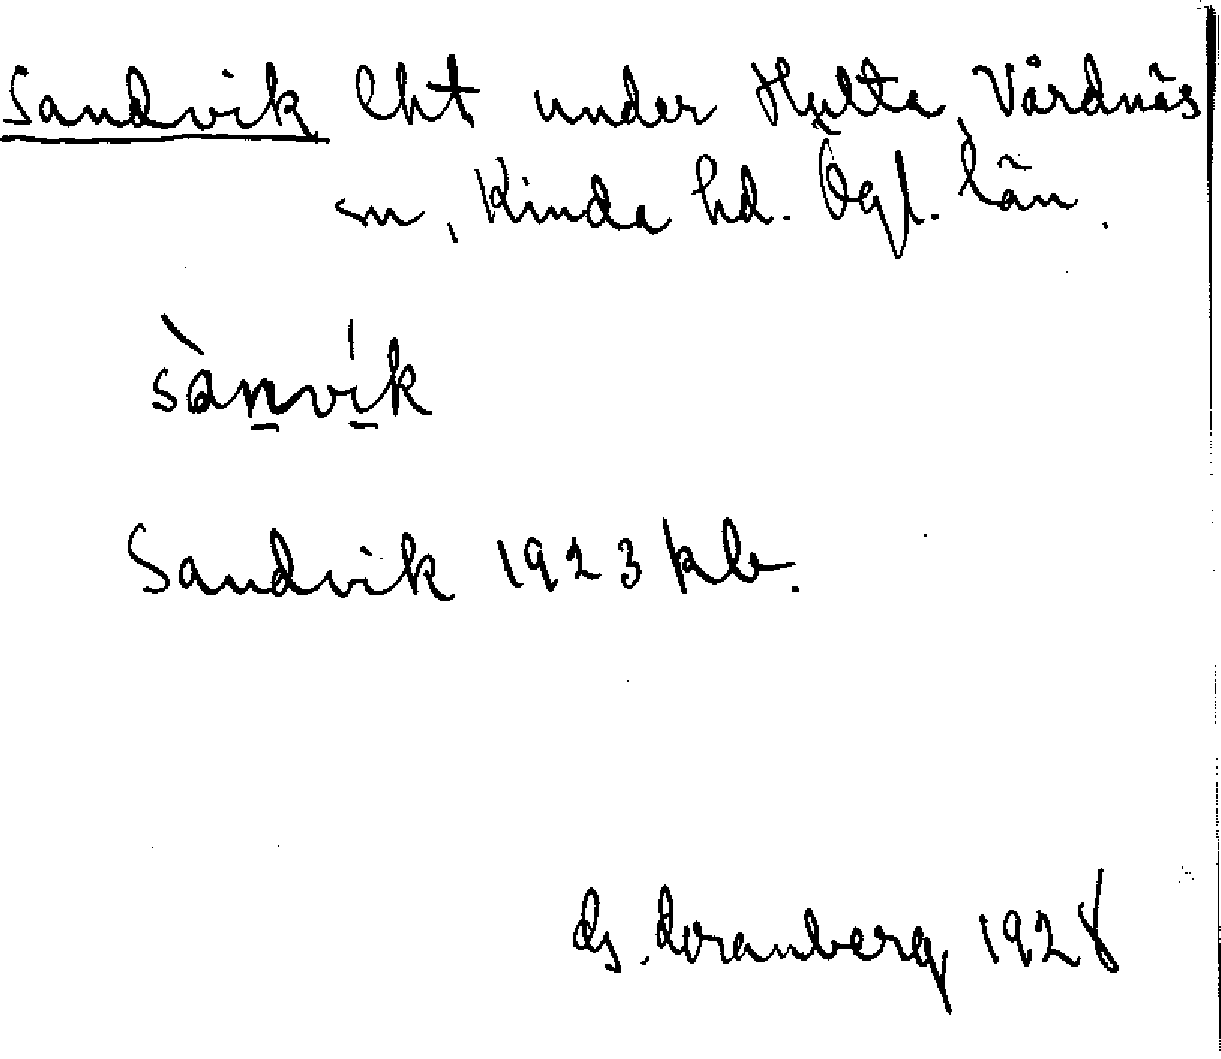 Sandvik lht under Hulta, Vårdnäs
sn, Kinda hd. Ögl. län.
sànvík
Sandvik 1923 kb.
G. Granberg 1928